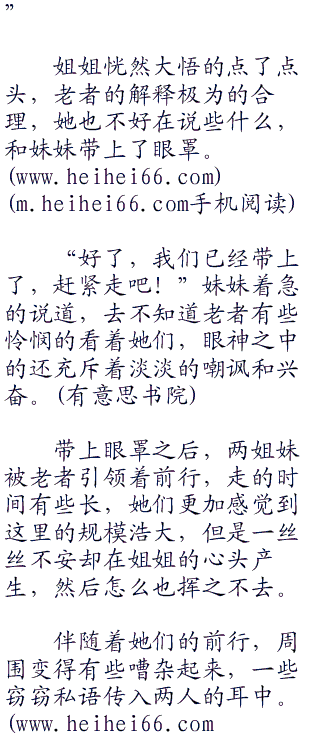 ”
姐姐恍然大悟的点了点
头，老者的解释极为的合
理，她也不好在说些什么，
和妹妹带上了眼罩。
(www.heihei66.com)
(m.heihei66.com手机阅读)
“好了，我们已经带上
了，赶紧走吧！”妹妹着急
的说道，去不知道老者有些
怜悯的看着她们，眼神之中
的还充斥着淡淡的嘲讽和兴
奋。(有意思书院)
带上眼罩之后，两姐妹
被老者引领着前行，走的时
间有些长，她们更加感觉到
这里的规模浩大，但是一丝
丝不安却在姐姐的心头产
生，然后怎么也挥之不去。
伴随着她们的前行，周
围变得有些嘈杂起来，一些
窃窃私语传入两人的耳中。
(www.heihei66.com